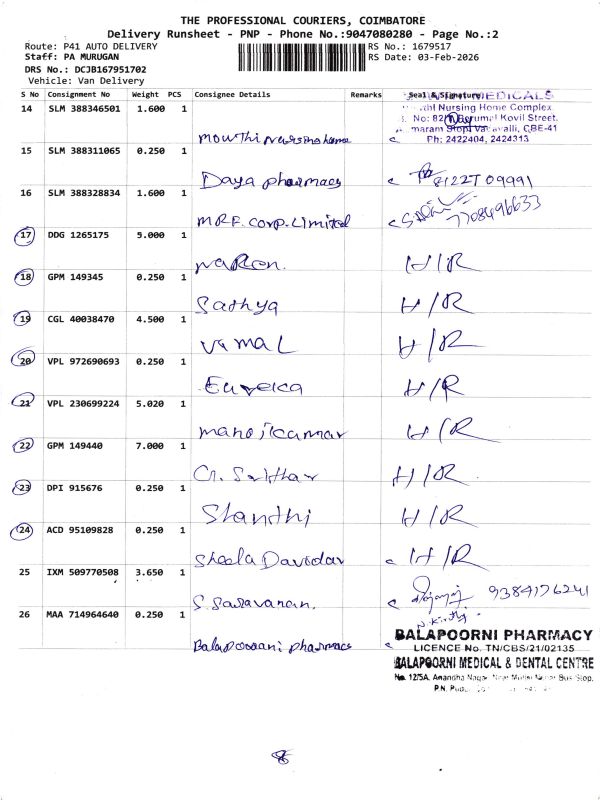 THE PROFESSIONAL COURIERS, COIMBATORE
Delivery Runsheet - PNP - Phone No.:9047080280 - Page No.:2
Route: P41 AUTO DELIVERY
RS No.: 1679517
Staff: PA MURUGAN
RS Date: 03-Feb-2026
DRS No.: DCJB167951702
Vehicle: Van Delivery
S No Consignment No Weight PCS Consignee Details Remarks Seal & Signature
MEDICALS
Nursing Home Complex
No: 82/ Perumal Kovil Street.
Stop, CBE-41
Ph: 2422404, 2424313
14 SLM 388346501 1.600 1
Mowthi Nursing home
15 SLM 388311065 0.250 1
Daya pharmacy 8122T 09991
16 SLM 388328834 1.600 1
MRF. Corp. Limited 7708496633
17 DDG 1265175 5.000 1
Naren. H/R
18 GPM 149345 0.250 1
Sathya H/R
19 CGL 40038470 4.500 1
Vimal H/R
20 VPL 972690693 0.250 1
Eureka H/R
21 VPL 230699224 5.020 1
Manojkumar H/R
22 GPM 149440 7.000 1
G. Sridhar H/R
23 DPI 915676 0.250 1
Shanthi H/R
24 ACD 95109828 0.250 1
Sheela Davidar H/R
25 IXM 509770508 3.650 1
S. Saravanan. 9384176241
26 MAA 714964640 0.250 1
N. Kirthi
Balapoorani pharmacy
BALAPOORNI PHARMACY
LICENCE No. TN/CBS/21/02135
BALAPOORNI MEDICAL & DENTAL CENTRE
No. 12/5A, Anandha Nagar, Bus Stop,
P.N.
8